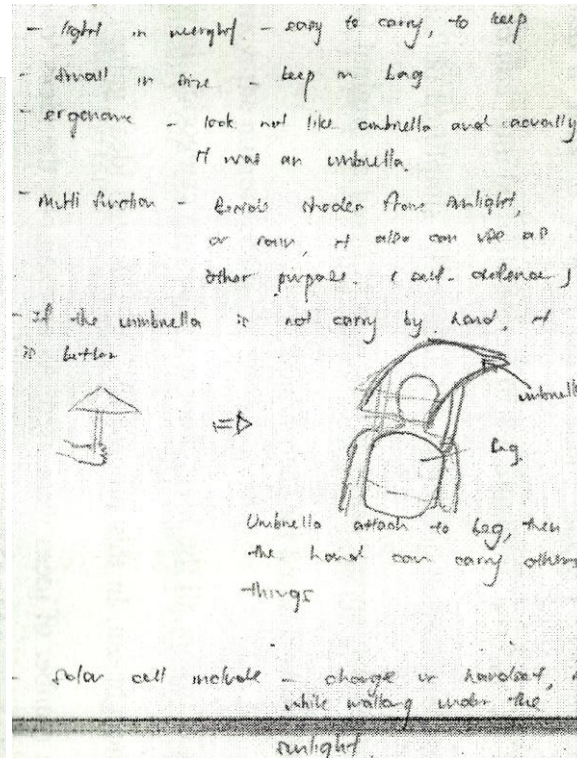 - light in weight - easy to carry, to keep
- small in size - keep in bag
- ergonomic - look not like umbrella and acvually
it was an umbrella.
- Multi function - shader from sunlight,
or rain, it also can use as
other purpose. ( self-defence )
- If the umbrella is not carry by hand, it
is better
umbrella
Bag.
Umbrella attach to bag, then
the hand can carry others
things
- Solar cell include - charge ur handset,
while walking under the
sunlight